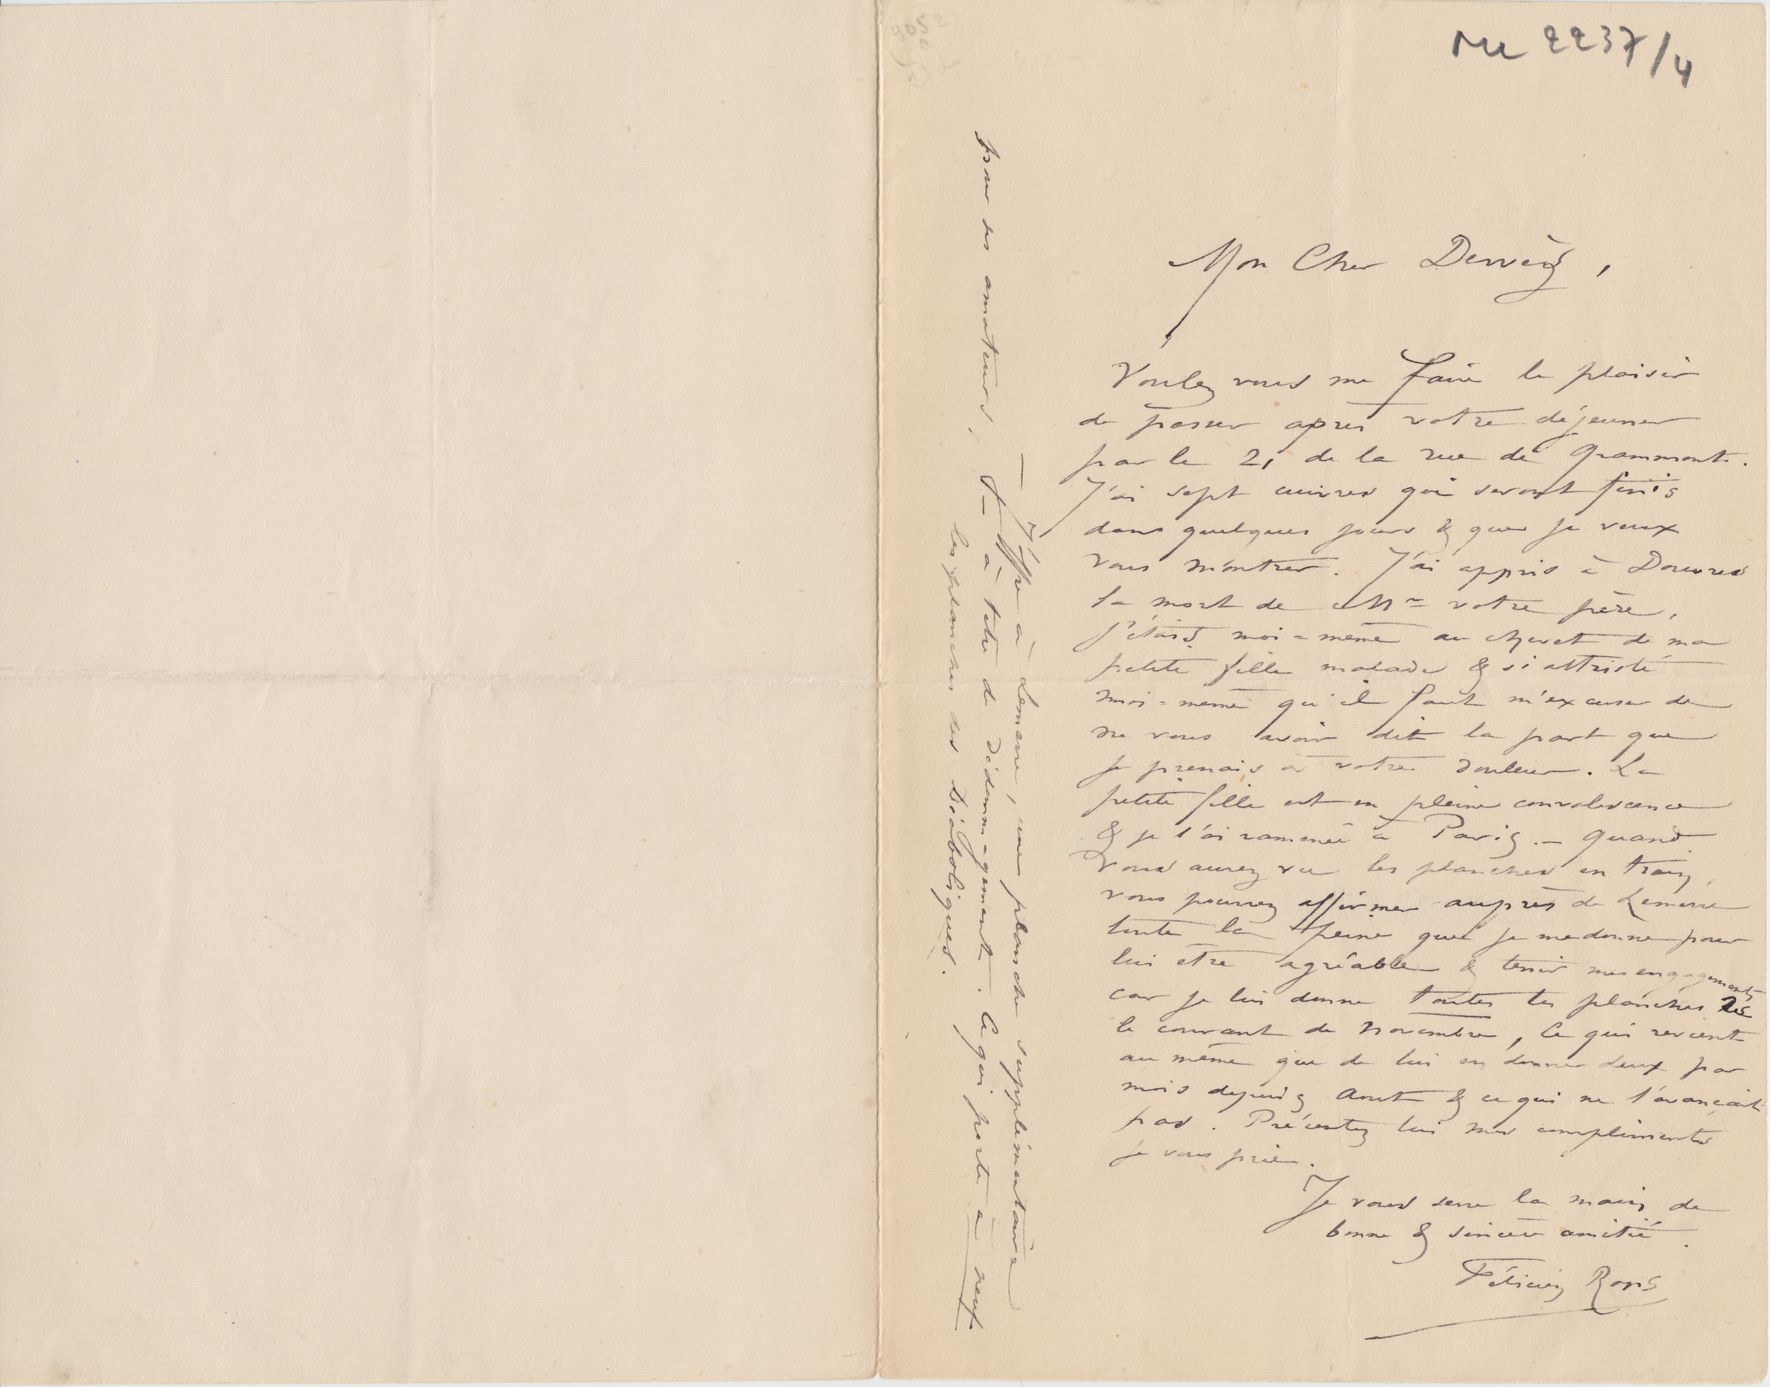 ML 2237/4
Mon Cher Dervèz,
Voulez vous me faire le plaisir
de passer après votre déjeuner
par le 21 de la rue de Grammont.
J'ai sept cuivres qui seront finis
dans quelques jours & que je veux
vous montrer. J'ai appris à Douvres
la mort de Mr votre père,
j'étais moi=même au chevet de ma
petite fille malade & si attristé
moi=même qu'il faut m'excuser de
ne vous avoir dit la part que
je prenais à votre douleur. La
petite fille est en pleine convalescence
& je l'ai ramenée à Paris. – Quand
vous aurez vu les planches en train,
vous pourrez affirmer auprès de Lemerre
toute la peine que je me donne pour
lui être agréable & tenir mes engagements
car je lui donne toutes les planches
le courant de Novembre, ce qui revient
au même que de lui en donner deux par
mois depuis Aout & ce qui ne l'avançait
pas. Présentez lui mes compliments
je vous prie.
Je vous serre la main de
bonne & sincère amitié.
Félicien Rops
— J'offre à Lemerre, une planche supplémentaire
pour ses amateurs, & à titre de dédommagement. Ce qui porte à neuf
les planches des Diaboliques.